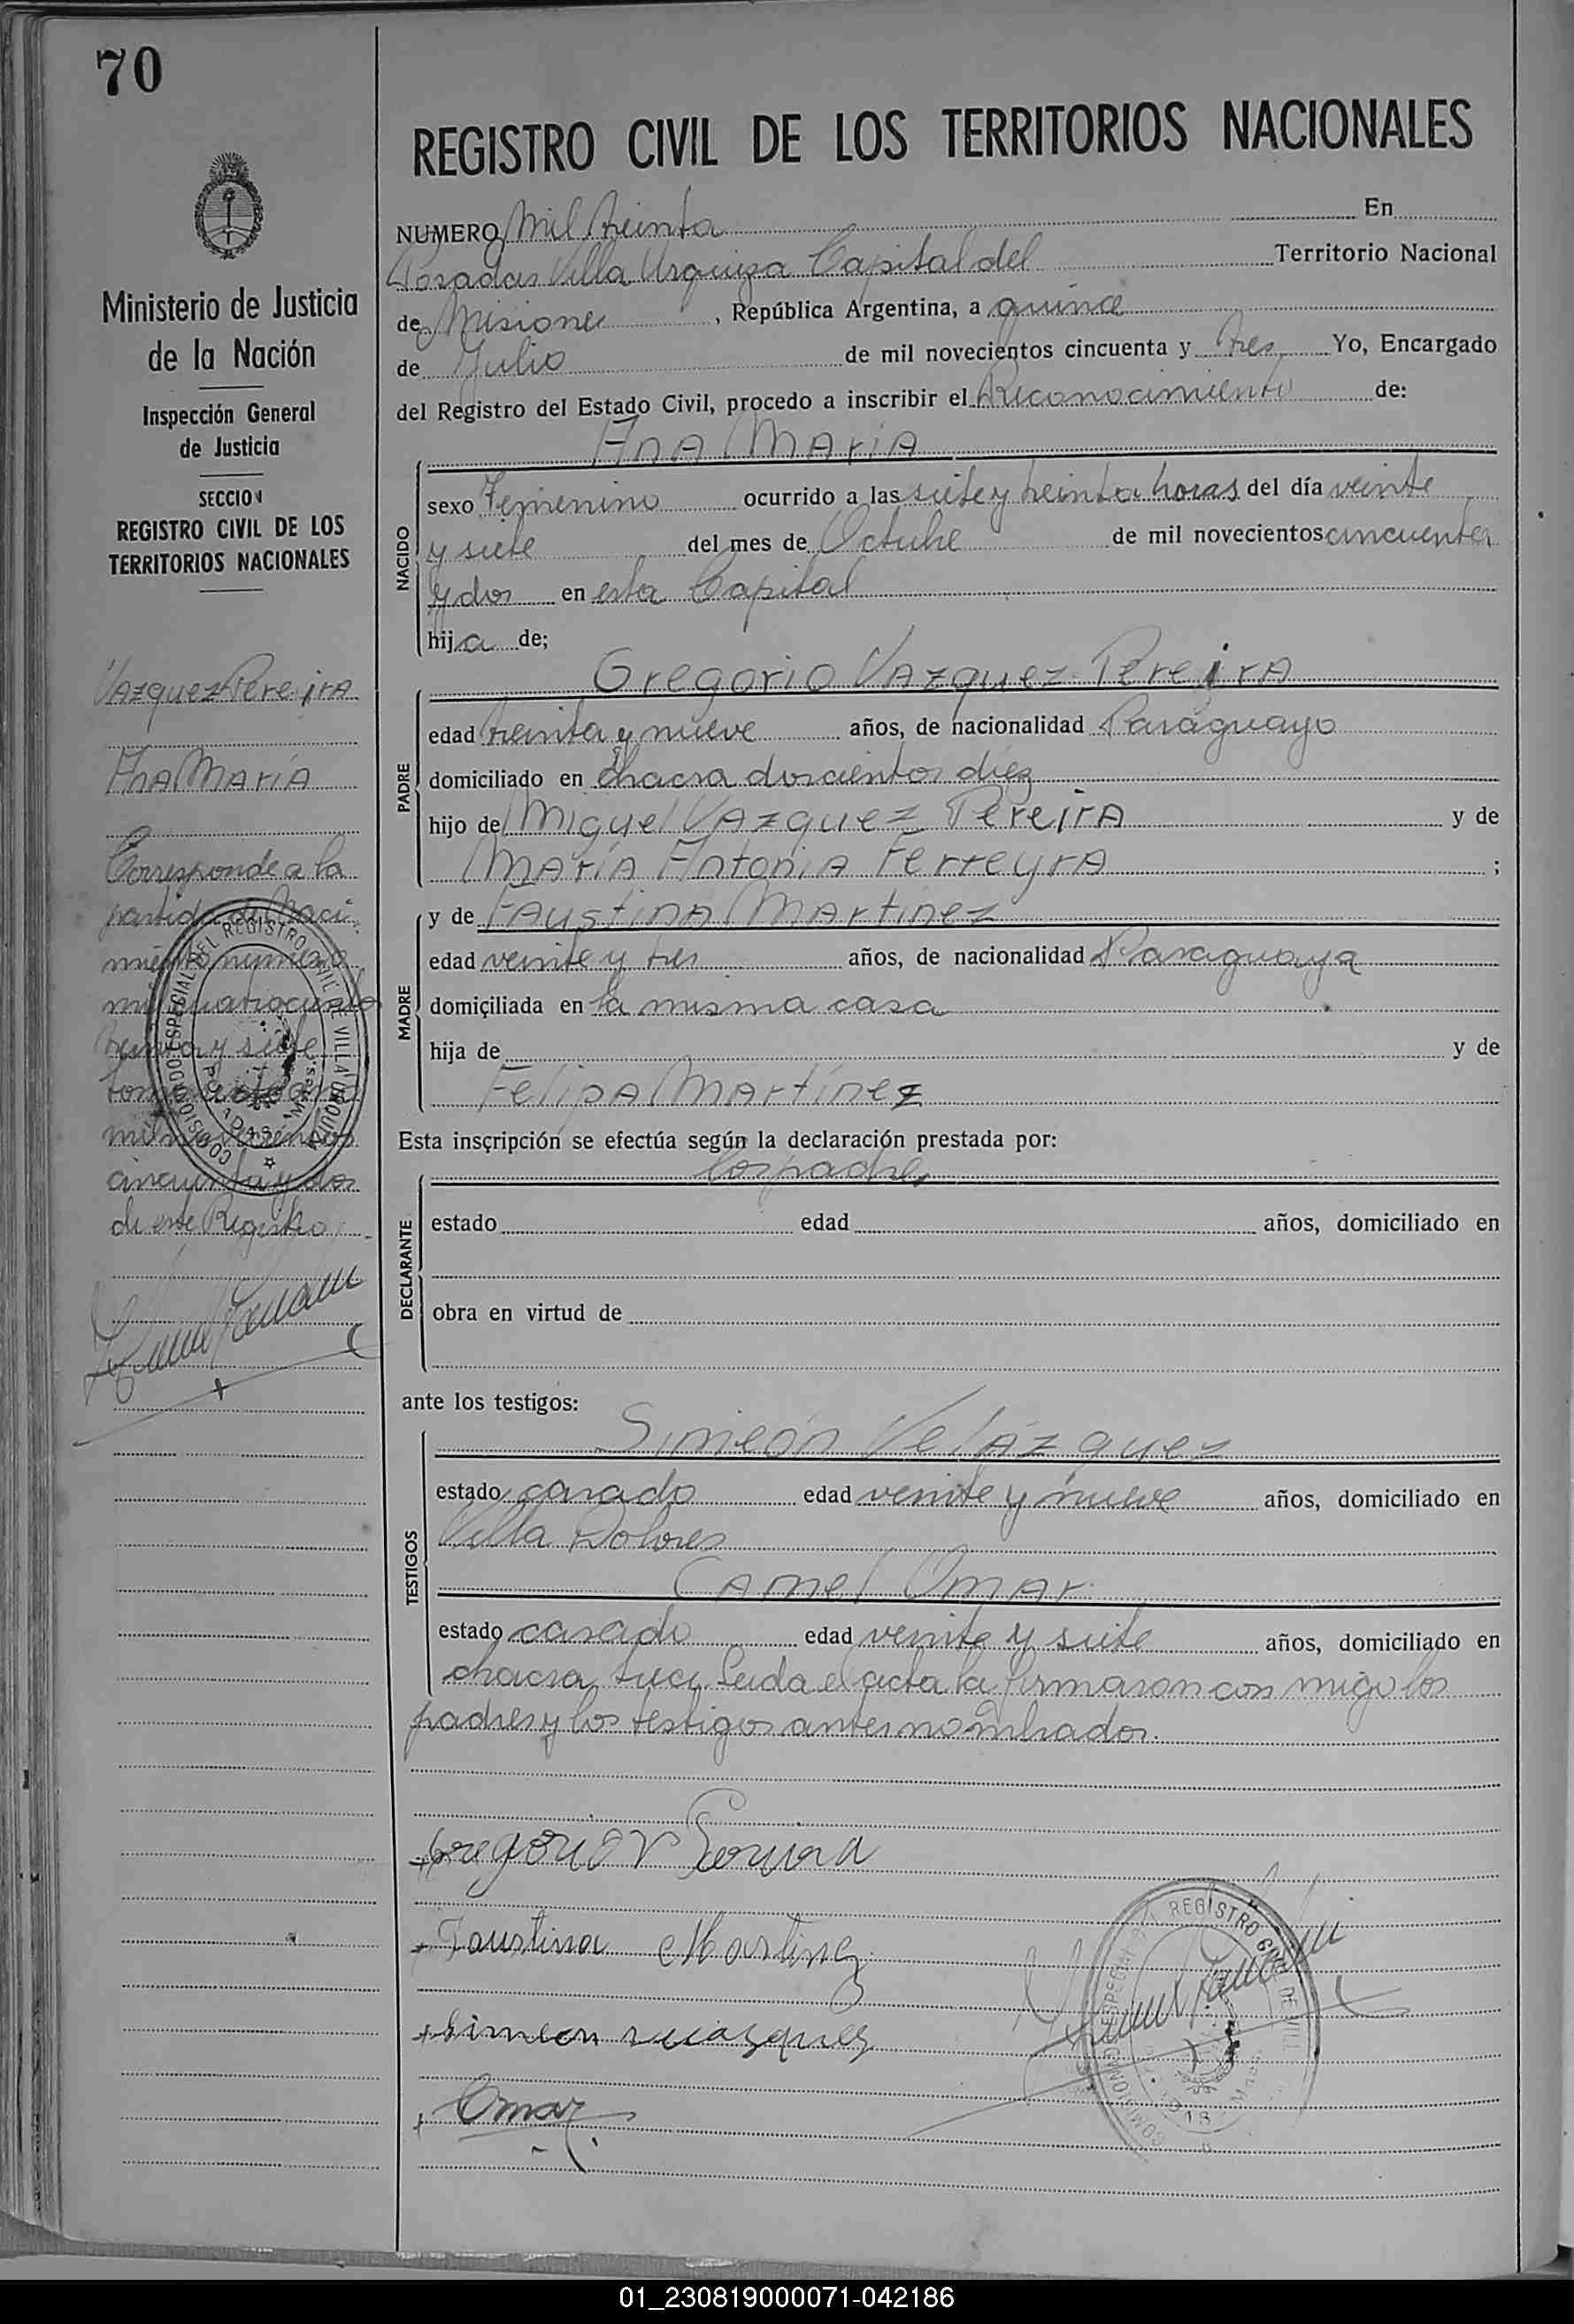 70
Ministerio de Justicia
de la Nación
Inspección General
de Justicia
SECCION
REGISTRO CIVIL DE LOS
TERRITORIOS NACIONALES
Vazquez Pereira
Ana María
Corresponde a la
partida de Naci
miento número
mil cuatrocientos
treinta y siete
tomo
mil novecientos
cincuenta y dos
de este Registro
REGISTRO CIVIL DE LOS TERRITORIOS NACIONALES
NUMERO Mil treinta En
Posadas Villa Urquiza Capital del Territorio Nacional
de Misiones, República Argentina, a quince
de Julio de mil novecientos cincuenta y tres Yo, Encargado
del Registro del Estado Civil, procedo a inscribir el Reconocimiento de:
Ana María
NACIDO
sexo Femenino ocurrido a las siete y treinta horas del día veinte
y siete del mes de Octubre de mil novecientos cincuenta
y dos en esta Capital
hija de;
Gregorio Vazquez Pereira
PADRE
edad treinta y nueve años, de nacionalidad Paraguayo
domiciliado en chacra doscientos diez
hijo de Miguel Vazquez Pereira y de
María Antonia Ferreyra ;
MADRE
y de Faustina Martinez
edad veinte y tres años, de nacionalidad Paraguaya
domiciliada en la misma casa
hija de y de
Felipa Martínez
Esta inscripción se efectúa según la declaración prestada por:
los padres
DECLARANTE
estado edad años, domiciliado en
obra en virtud de
ante los testigos:
TESTIGOS
Simeón Velázquez
estado casado edad veinte y nueve años, domiciliado en
Villa Dolores
Camel Omar
estado casado edad veinte y siete años, domiciliado en
chacra trece. Leida el acta la firmaron con migo los
padres y los testigos antes nombrados.
Gregorio V Pereira
Faustina Martinez
Simeon
Omar
01_230819000071-042186